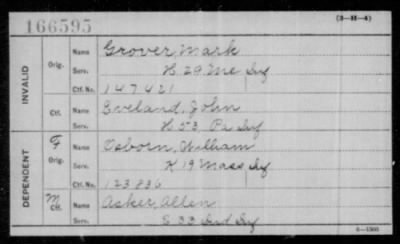 (3—35—4)
166595
INVALID
Orig.
Name Grover, Mark
Serv. H 29 Me Inf
Ctf. No. 147421
Ctf.
Name Eveland, John
Serv. H 53 Pa Inf
DEPENDENT
F
Orig.
Name Osborn, William
Serv. K 19 Mass Inf
Ctf. No. 123836
M
Ctf.
Name Asker, Allen
Serv. 33 Ind Inf